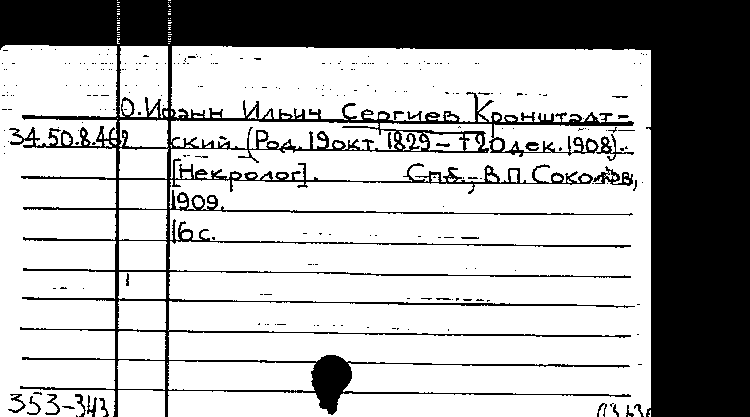 О. Иоанн Ильич Сергиев Кронштадт-
34.50.8.462 ский. (Род. 19 окт. 1829 – †20 дек. 1908).
[Некролог]. Спб., В.П. Соколов,
1909.
16 с.
353-343